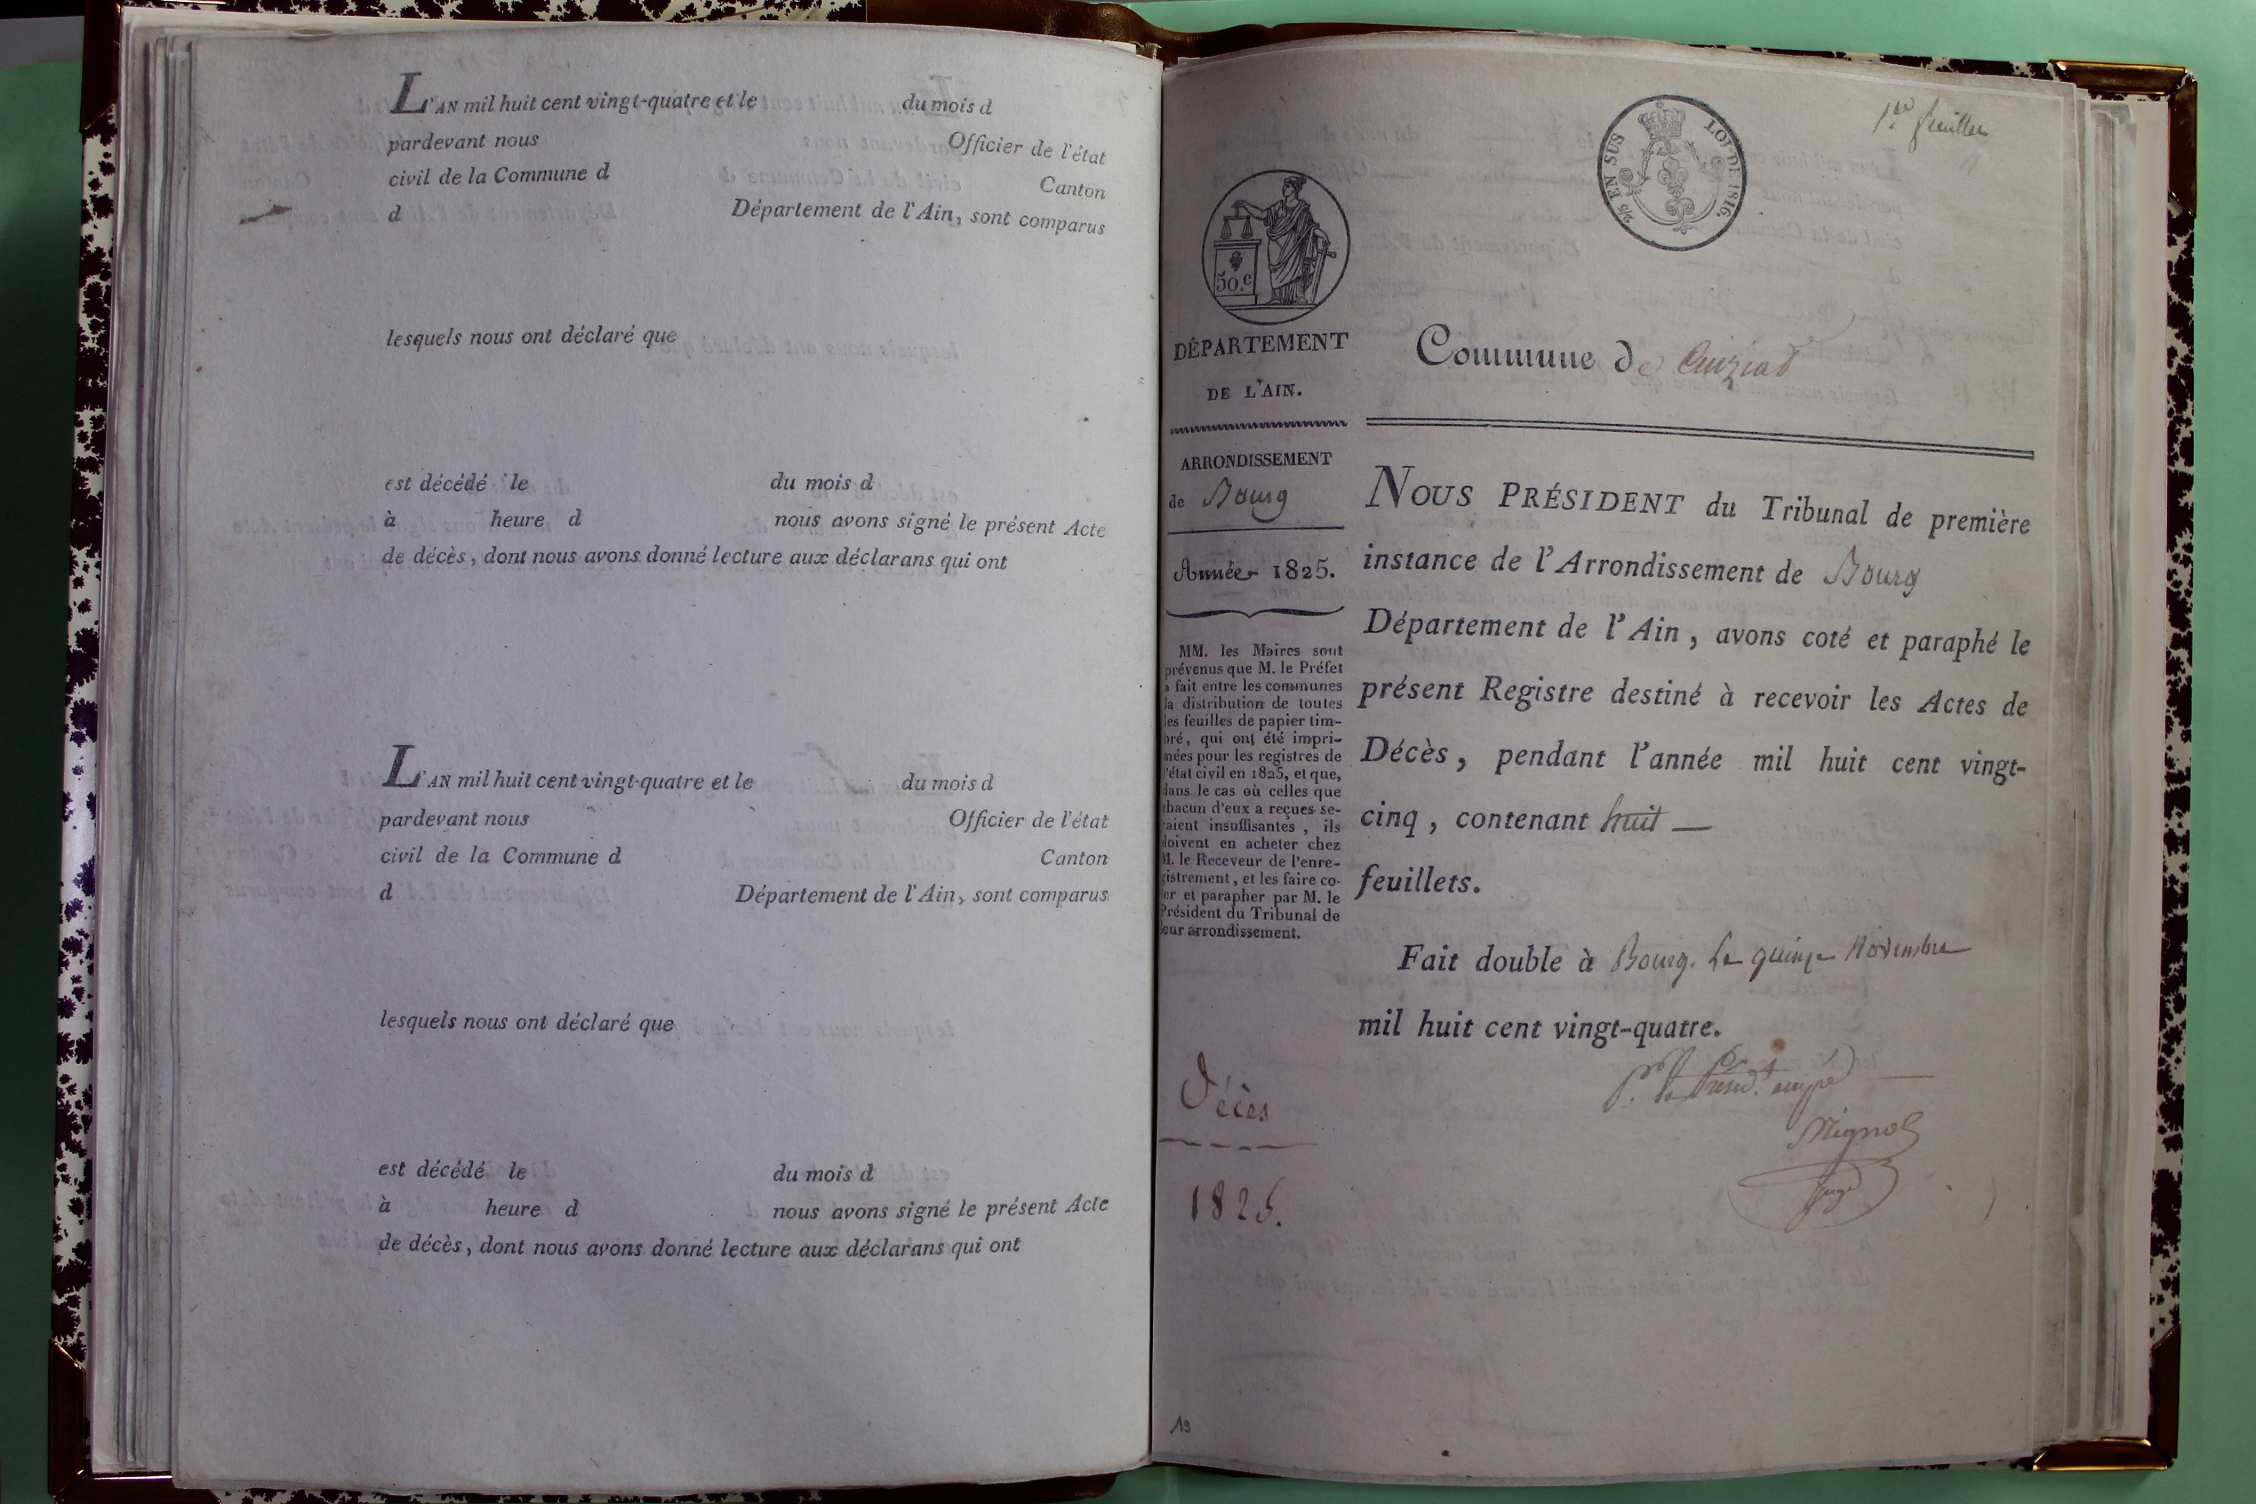 L'AN mil huit cent vingt-quatre et le du mois d
pardevant nous Officier de l'état
civil de la Commune d Canton
d Département de l'Ain, sont comparus
lesquels nous ont déclaré que
est décédé le du mois d
à heure d nous avons signé le présent Acte
de décès, dont nous avons donné lecture aux déclarans qui ont
L'AN mil huit cent vingt-quatre et le du mois d
pardevant nous Officier de l'état
civil de la Commune d Canton
d Département de l'Ain, sont comparus
lesquels nous ont déclaré que
est décédé le du mois d
à heure d nous avons signé le présent Acte
de décès, dont nous avons donné lecture aux déclarans qui ont
1er feuillet
2/5 EN SUS LOI DE 1816.
50.c
DÉPARTEMENT
DE L'AIN.
ARRONDISSEMENT
de Bourg
Année 1825.
MM. les Maires sont
prévenus que M. le Préfet
a fait entre les communes
la distribution de toutes
les feuilles de papier tim-
bré, qui ont été impri-
mées pour les registres de
l'état civil en 1825, et que,
dans le cas où celles que
chacun d'eux a reçues se-
raient insuffisantes, ils
doivent en acheter chez
M. le Receveur de l'enre-
gistrement, et les faire co-
ter et parapher par M. le
Président du Tribunal de
leur arrondissement.
Décès
1825.
19
Commune de Cuiziat
NOUS PRÉSIDENT du Tribunal de première
instance de l'Arrondissement de Bourg
Département de l'Ain, avons coté et paraphé le
présent Registre destiné à recevoir les Actes de
Décès, pendant l'année mil huit cent vingt-
cinq, contenant huit —
feuillets.
Fait double à Bourg. Le quinze Novembre
mil huit cent vingt-quatre.
Pr. le Présid.t empé
juge